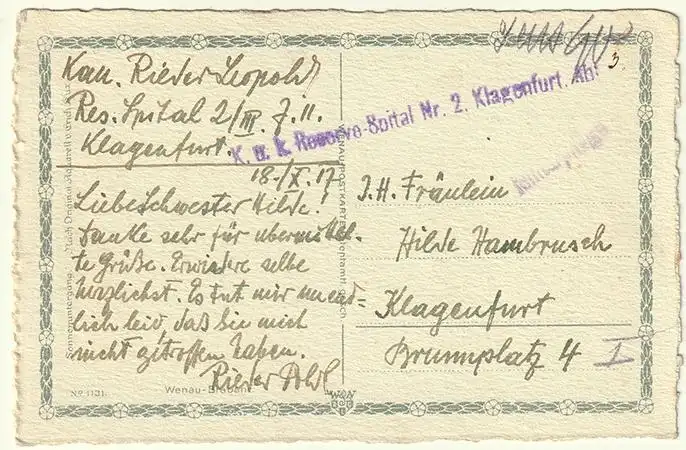 Kan. Rieder Leopold
Res. Spital 2/III. Z. 11.
Klagenfurt.
18./X. 17
Liebe Schwester Hilde!
Danke sehr für übermittel-
te Grüße. Erwidere selbe
herzlichst. Es tut mir unend=
lich leid, daß Sie mich
nicht getroffen haben.
Rieder Pold
K. u. k. Reserve-Spital Nr. 2. Klagenfurt. Ab
3.
I. H. Fräulein
Hilde Hambrusch
Klagenfurt
Brunnplatz 4 I
Nº 1131
Wenau-Brabant
WENAU-POSTKARTE